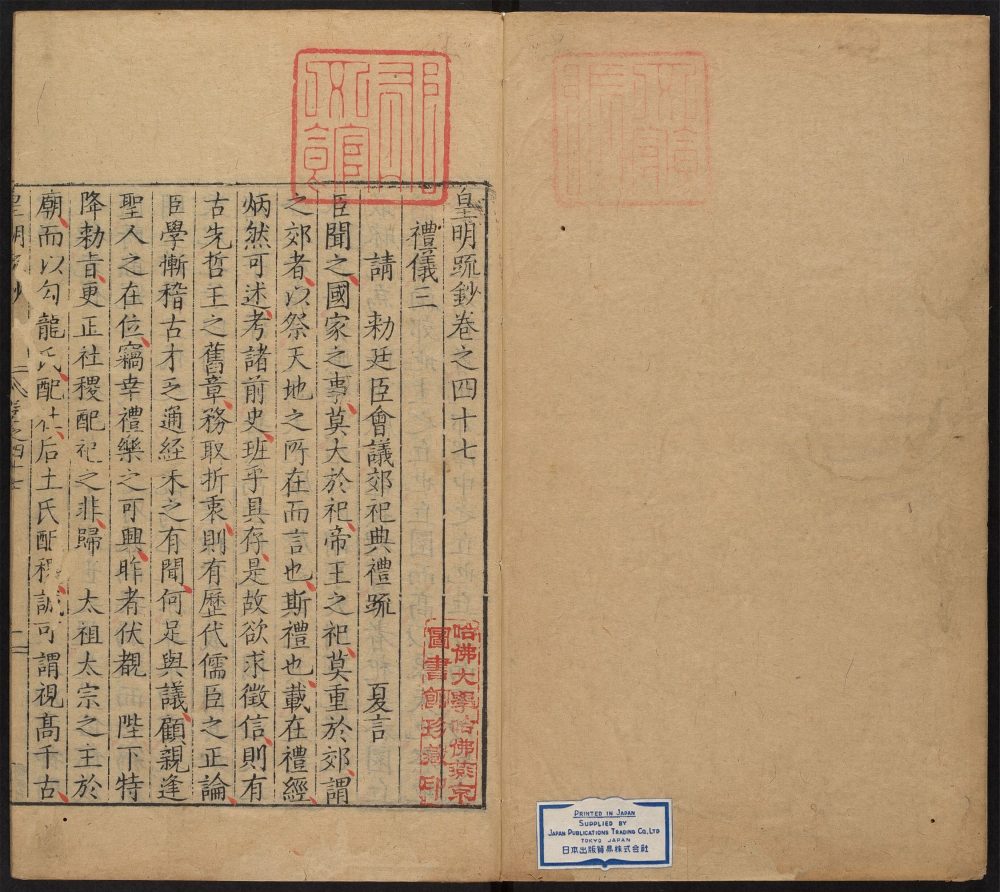 皇明疏鈔卷之四十七
禮儀三
請 勑廷臣會議郊祀典禮疏 夏言
臣聞之國家之事莫大於祀帝王之祀莫重於郊謂
之郊者以祭天地之所在而言也斯禮也載在禮經
炳然可述考諸前史班乎具存是故欲求徵信則有
古先哲王之舊章務取折衷則有歷代儒臣之正論
臣學慚稽古才乏通經未之有聞何足與議顧親逢
聖人之在位竊幸禮樂之可興昨者伏覩 陛下特
降勑旨更正社稷配祀之非歸 太祖太宗之主於
廟而以勾龍氏配社后土氏配稷誠可謂視髙千古
哈佛大學哈佛燕京
圖書館珍藏印
PRINTED IN JAPAN
SUPPLIED BY
JAPAN PUBLICATIONS TRADING CO., LTD
TOKYO JAPAN
日本出版貿易株式会社